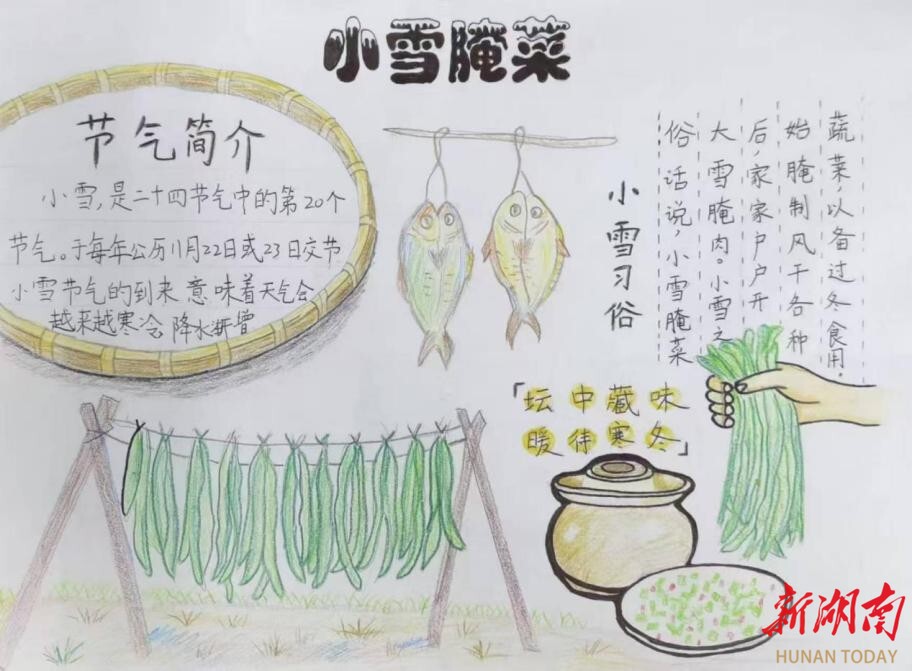 小雪腌菜
节气简介
小雪，是二十四节气中的第20个
节气。于每年公历11月22日或23日交节
小雪节气的到来意味着天气会
越来越寒冷 降水渐增
小雪习俗
俗话说，小雪腌菜
大雪腌肉。小雪之
后，家家户户开
始腌制风干各种
蔬菜，以备过冬食用。
「坛中藏味
暖待寒冬」
新湖南
HUNAN TODAY